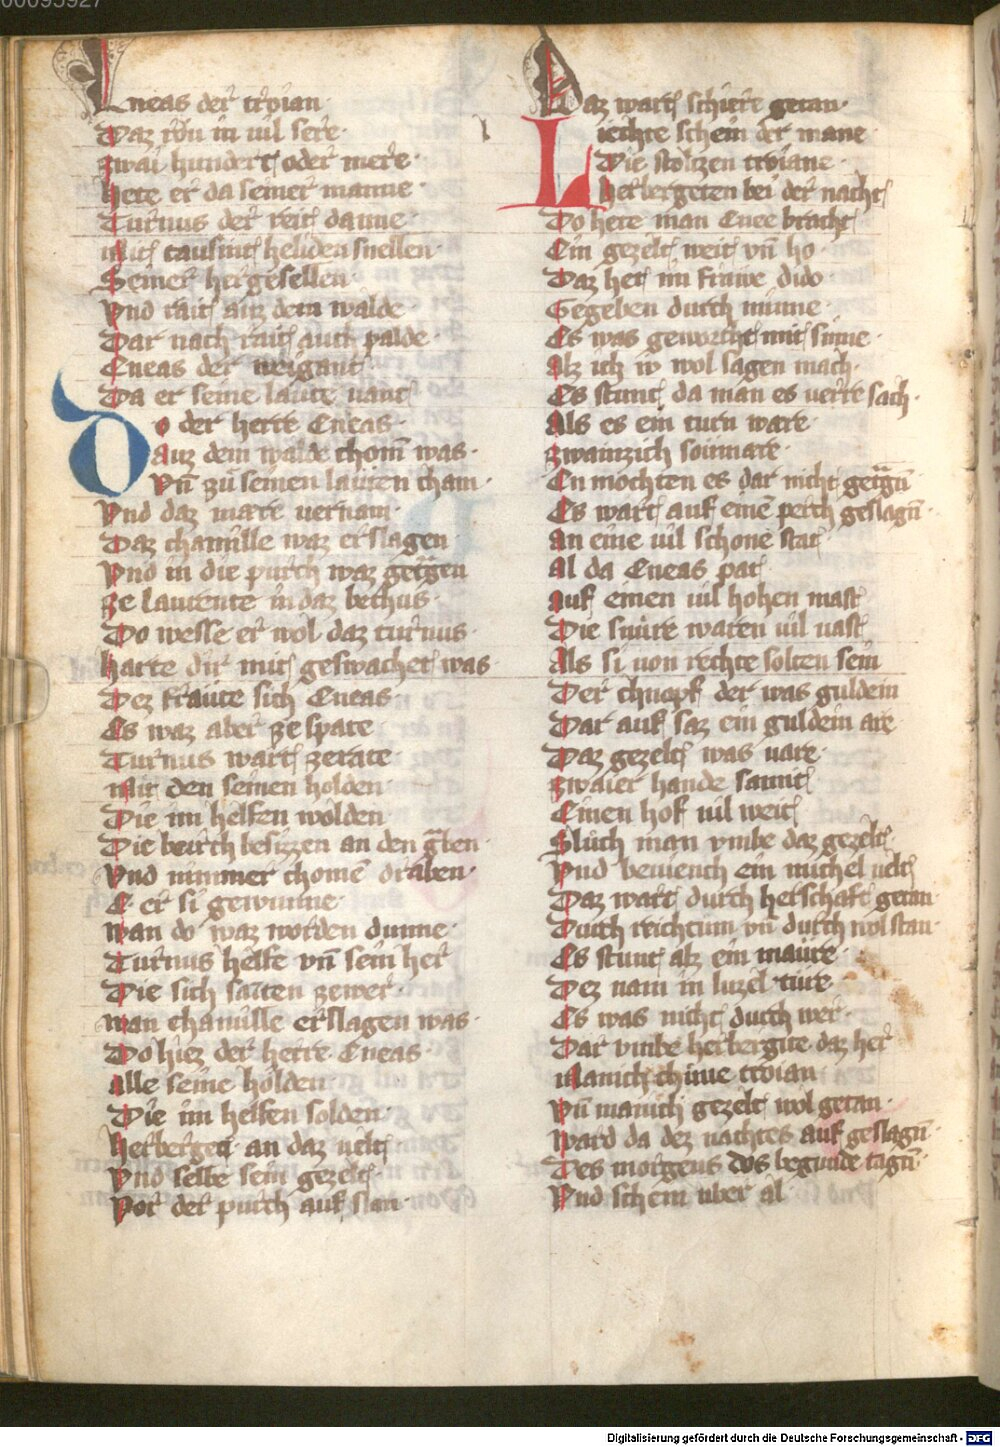 00095927
Eneas der troian
Daz rou in uil sere
zwai hundert oder mere
hete er da seiner manne
Turnus der reit danne
mit tausint heliden snellen
Seiner hergesellen
Vnd rait auz dem walde
Dar nach rait auch palde
Eneas der weigant
Da er seine laute uant
Do der herre Eneas
auz dem walde chom was
Vn zu seinen lauten cham
Vnd daz mare uernam
Daz chamille waz erslagen
Vnd in die purch waz getragen
ze laurente in daz bethus
Do wesse er wol daz turnus
harte dir mit geswachet was
Dez fraute sich Eneas
Es waz aber ze spate
Turnus wart zerate
Mit den seinen holden
Die im helfen wolden
Die burch besizzen an den graben
Vnd nimmer chomen draben
E er si gewunne
wan do waz worden dunne
Turnus helfe vn sein her
Die sich satten zewer
wan chamille erslagen was
Do hiez der herre Eneas
Alle seine holden
Die im helfen solden
Herbergen an daz uelt
Vnd selbe sein gezelt
Vor der purch auf slan
Daz wart schiere getan
Liechte schein der mane
Die stoltzen troiane
herbergeten bei der nacht
Do hete man Enee bracht
Ein gezelt weit vn ho
Daz het im frawe dido
Gegeben durch minne
Es was geworcht mit sinne
Alz ich iv wol sagen mach
Es stunt da man es uerre sach
Als es ein turn ware
zwainzich soumare
En mochten es dar nicht getragn
Es wart auf eine perch geslagn
an eine uil schone stat
Al da Eneas pat
auf einen uil hohen mast
Die snure waren uil uast
Als si uon rechte solten sein
Der chnopf der was guldein
Dar auf saz ein guldein are
Daz gezelt was uare
zwaier hande samit
Einen hof uil weit
Sluch man vmbe daz gezelt
Vnd beuiench ein michel uelt
Daz wart durch herschaft getan
Durch reichtum vn durch wol stan
Es stunt alz ein maure
Dez nam in luzel ture
Es was nicht durch wer
Dar vmbe herbergite daz her
Manich chune troian
Vn manich gezelt wol getan
Ward da dez nachtes auf geslagn
Des morgens dos begunde tagn
Vnd schein uber al
Digitalisierung gefördert durch die Deutsche Forschungsgemeinschaft - DFG